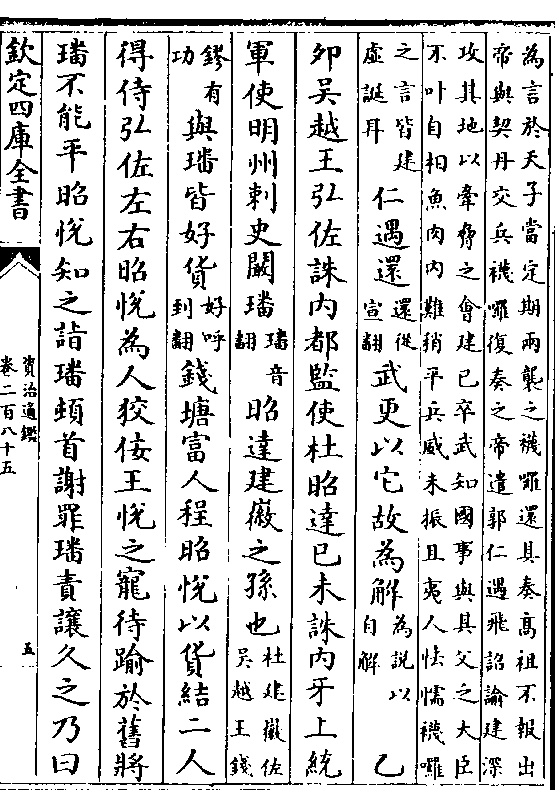 為言於天子當定期兩襲之襪囉還具奏髙祖不報出
帝與契丹交兵襪囉復奏之帝遣郭仁遇飛詔諭建深
攻其地以牽脅之會建已卒武知國事與其父之大臣
不叶自相魚肉内難稍平兵威未振且夷人怯懦襪囉
之言皆建
虛誕耳
仁遇還
還從
宣翻
武更以它故為解
為說以
自解
乙
卯吳越王弘佐誅内都監使杜昭達已未誅内牙上統
軍使明州刺史闞璠
璠音
翻
昭達建徽之孫也
杜建徽佐
吳越王錢
鏐有
功
與璠皆好貨
好呼
到翻
錢塘富人程昭悅以貨結二人
得侍弘佐左右昭悅為人狡佞王悅之寵待踰於舊將
璠不能平昭悅知之詣璠頓首謝罪璠責讓久之乃曰
欽定四庫全書
資治通鑑
卷二百八十五
五